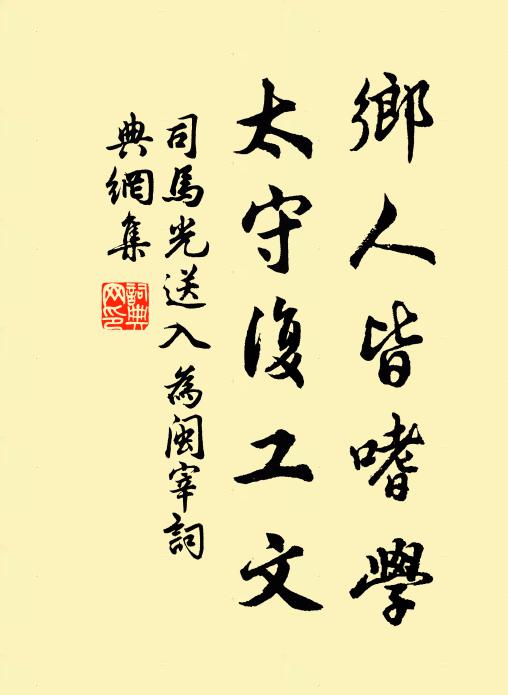 鄉人皆嗜學
太守復工文
司馬光送入為閩宰詞
典網集
詞典網印